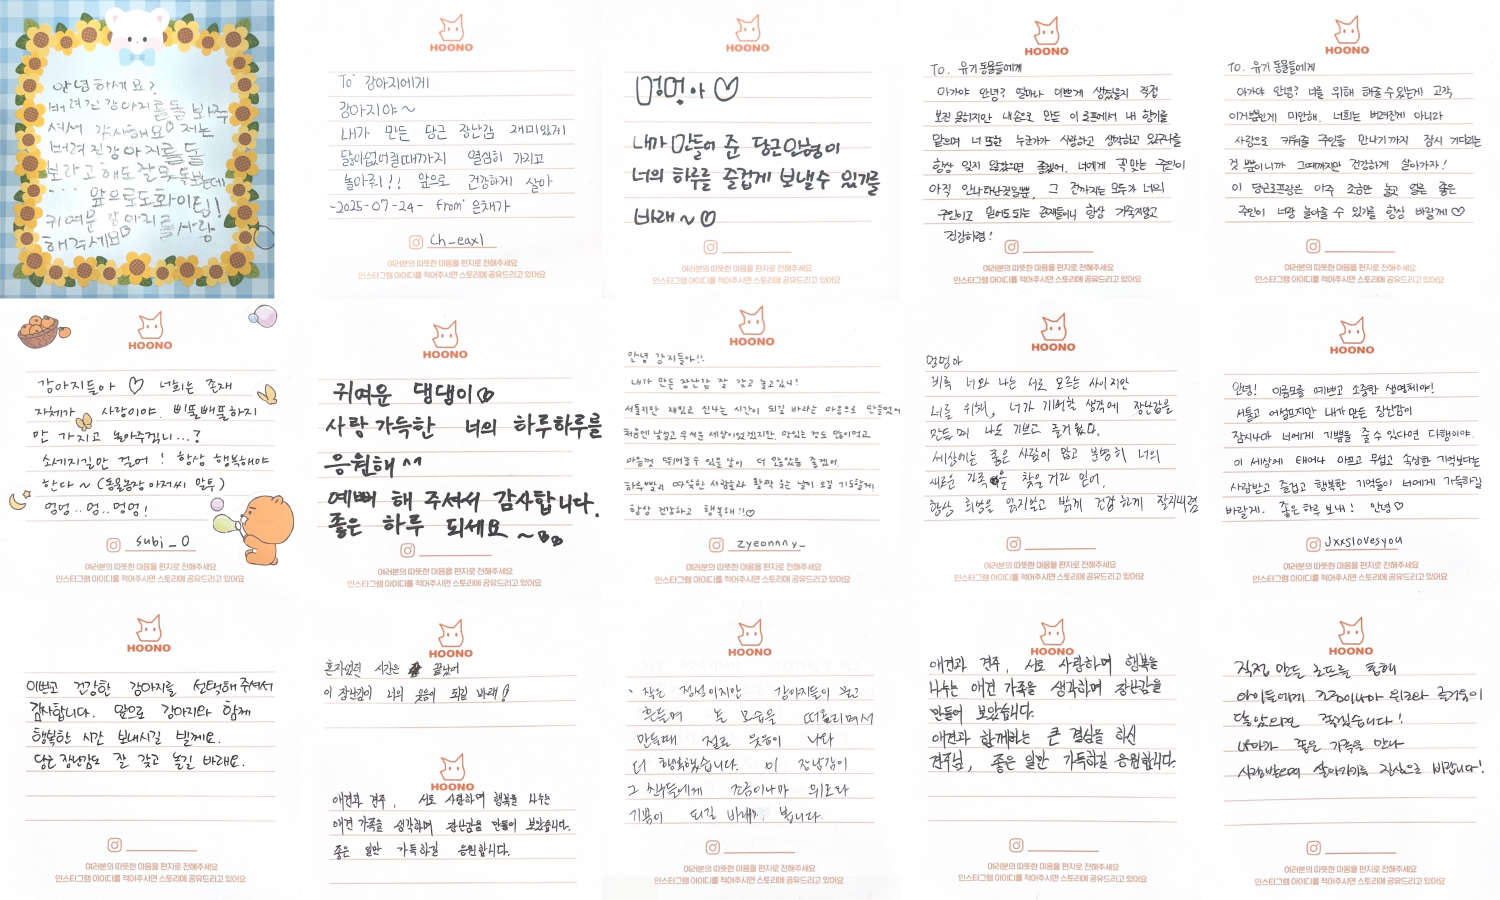 안녕하세요?
버려진 강아지를 돌봐주
셔서 감사해요 저는
버려진강아지를 돌
보라고 해도 잘 못돌보는데
... 앞으로도화이팅!
귀여운 강아지를 사랑
해주세요
HOONO
To' 강아지에게
강아지야~
내가 만든 당근 장난감 재미있게
닳아없어질때까지 열심히 가지고
놀아줘!! 앞으로 건강하게 살아
-2025-07-24- from' 은채가
ch_eax1
여러분의 따뜻한 마음을 편지로 전해주세요
인스타그램 아이디를 적어주시면 스토리에 공유드리고 있어요
HOONO
멍멍아 ♡
내가 만들어 준 당근인형이
너의 하루를 즐겁게 보낼수 있기를
바래~♡
여러분의 따뜻한 마음을 편지로 전해주세요
인스타그램 아이디를 적어주시면 스토리에 공유드리고 있어요
HOONO
To. 유기동물들에게
아가야 안녕? 얼마나 이쁘게 생겼을지 직접
보진 못하지만 내손으로 만든 이 로프에서 내 향기를
맡으며 너 또한 누군가가 사랑하고 생각하고 있구나를
항상 잊지 않았으면 좋겠어. 너에게 꼭 맞는 주인이
아직 안나타난것일뿐, 그 전까지는 모두가 너의
주인이고 믿어도되는 존재들이니 항상 기죽지말고
건강하렴!
여러분의 따뜻한 마음을 편지로 전해주세요
인스타그램 아이디를 적어주시면 스토리에 공유드리고 있어요
HOONO
To. 유기동물들에게
아가야 안녕? 너를 위해 해줄수있는게 고작
이거뿐인게 미안해. 너희는 버려진게 아니라
사랑으로 키워줄 주인을 만나기까지 잠시 기다리는
것 뿐이니까 그때까지만 건강하게 살아가자!
이 당근로프랑은 아주 조금만 놀고 얼른 좋은
주인이 너랑 놀아줄 수 있기를 항상 바랄게♡
여러분의 따뜻한 마음을 편지로 전해주세요
인스타그램 아이디를 적어주시면 스토리에 공유드리고 있어요
HOONO
강아지들아 ♡ 너희는 존재
자체가 사랑이야. 삐뚤빼뚤하지
만 가지고 놀아주겠니...?
소세지길만 걸어! 항상 행복해야
한다~ (동물농장 아저씨 말투)
멍멍..멍..멍멍!
subi_0
여러분의 따뜻한 마음을 편지로 전해주세요
인스타그램 아이디를 적어주시면 스토리에 공유드리고 있어요
HOONO
귀여운 댕댕이
사랑 가득한 너의 하루하루를
응원해^^
예뻐 해 주셔서 감사합니다.
좋은 하루 되세요~
여러분의 따뜻한 마음을 편지로 전해주세요
인스타그램 아이디를 적어주시면 스토리에 공유드리고 있어요
HOONO
안녕 강지들아!!
내가 만든 장난감 잘 갖고 놀고있니?
서툴지만 재밌고 신나는 시간이 되길 바라는 마음으로 만들었어
처음엔 낯설고 무서운 세상이었겠지만, 맛있는 것도 많이먹고
마음껏 뛰어놀수 있을 날이 더 많았음 좋겠어.
하루빨리 따뜻한 사람들과 활짝 웃는 날이 오길 기도할게
항상 건강하고 행복해!!♡
zyeonnny_
여러분의 따뜻한 마음을 편지로 전해주세요
인스타그램 아이디를 적어주시면 스토리에 공유드리고 있어요
HOONO
멍멍아
비록 너와 나는 서로 모르는 사이지만
너를 위해, 너가 기뻐할 생각에 장난감을
만들며 나도 기쁘고 즐거웠다.
세상에는 좋은 사람이 많고 분명히 너의
새로운 가족을 찾을 거라 믿어.
항상 희망을 잃지말고 밝게 건강하게 잘지내렴
여러분의 따뜻한 마음을 편지로 전해주세요
인스타그램 아이디를 적어주시면 스토리에 공유드리고 있어요
HOONO
안녕! 이름모를 예쁘고 소중한 생명체야!
서툴고 어설프지만 내가 만든 장난감이
잠시나마 너에게 기쁨을 줄 수 있다면 다행이야.
이 세상에 태어나 아프고 무섭고 속상한 기억보다는
사랑받고 즐겁고 행복한 기억들이 너에게 가득하길
바랄게. 좋은하루 보내! 안녕♡
Jxxslovesyou
여러분의 따뜻한 마음을 편지로 전해주세요
인스타그램 아이디를 적어주시면 스토리에 공유드리고 있어요
HOONO
이쁘고 건강한 강아지를 선택해주셔서
감사합니다. 앞으로 강아지와 함께
행복한 시간 보내시길 빌게요.
당근 장난감도 잘 갖고 놀길 바래요.
여러분의 따뜻한 마음을 편지로 전해주세요
인스타그램 아이디를 적어주시면 스토리에 공유드리고 있어요
HOONO
혼자였던 시간은 끝났어
이 장난감이 너의 웃음이 되길 바래!
HOONO
애견과 견주, 서로 사랑하며 행복을 나누는
애견 가족을 생각하며 장난감을 만들어 보았습니다.
좋은 일만 가득하길 응원합니다.
여러분의 따뜻한 마음을 편지로 전해주세요
인스타그램 아이디를 적어주시면 스토리에 공유드리고 있어요
HOONO
작은 정성이지만 강아지들이 물고
흔들며 놀 모습을 떠올리며서
만들때 절로 웃음이 나와
더 행복했습니다. 이 장난감이
그 친구들에게 조금이나마 위로와
기쁨이 되길 바래봅니다.
여러분의 따뜻한 마음을 편지로 전해주세요
인스타그램 아이디를 적어주시면 스토리에 공유드리고 있어요
HOONO
애견과 견주, 서로 사랑하며 행복을
나누는 애견 가족을 생각하며 장난감을
만들어 보았습니다.
애견과 함께라는 큰 결심을 하신
견주님, 좋은 일만 가득하길 응원합니다.
여러분의 따뜻한 마음을 편지로 전해주세요
인스타그램 아이디를 적어주시면 스토리에 공유드리고 있어요
HOONO
직접 만든 로프를 통해
아이들에게 조금이나마 위로와 즐거움이
닿았으면 좋겠습니다!
나아가 좋은 가족을 만나
사랑받으며 살아가기를 진심으로 바랍니다!
여러분의 따뜻한 마음을 편지로 전해주세요
인스타그램 아이디를 적어주시면 스토리에 공유드리고 있어요